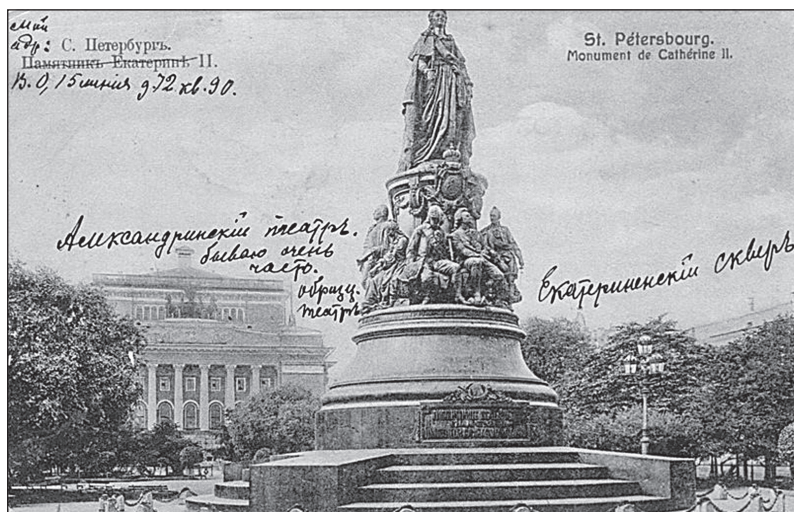 мой
адр:
С. Петербургъ.
Памятникъ Екатеринѣ II.
В.О, 15 линия д 72 кв. 90.
St. Pétersbourg.
Monument de Cathérine II.
Александринскій театръ.
бываю очень
часто.
образц.
театръ
Екатериненскій скверъ